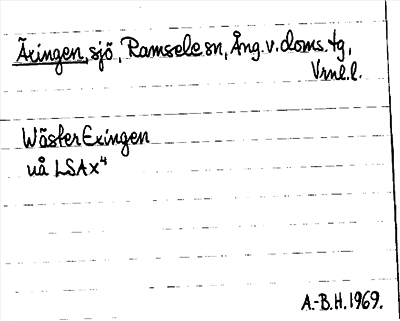 Äxingen, sjö, Ramsele sn, Ång. v. doms. tg,
Vrml. l.
WästerExingen
uå LSA x⁴
A.-B.H. 1969.